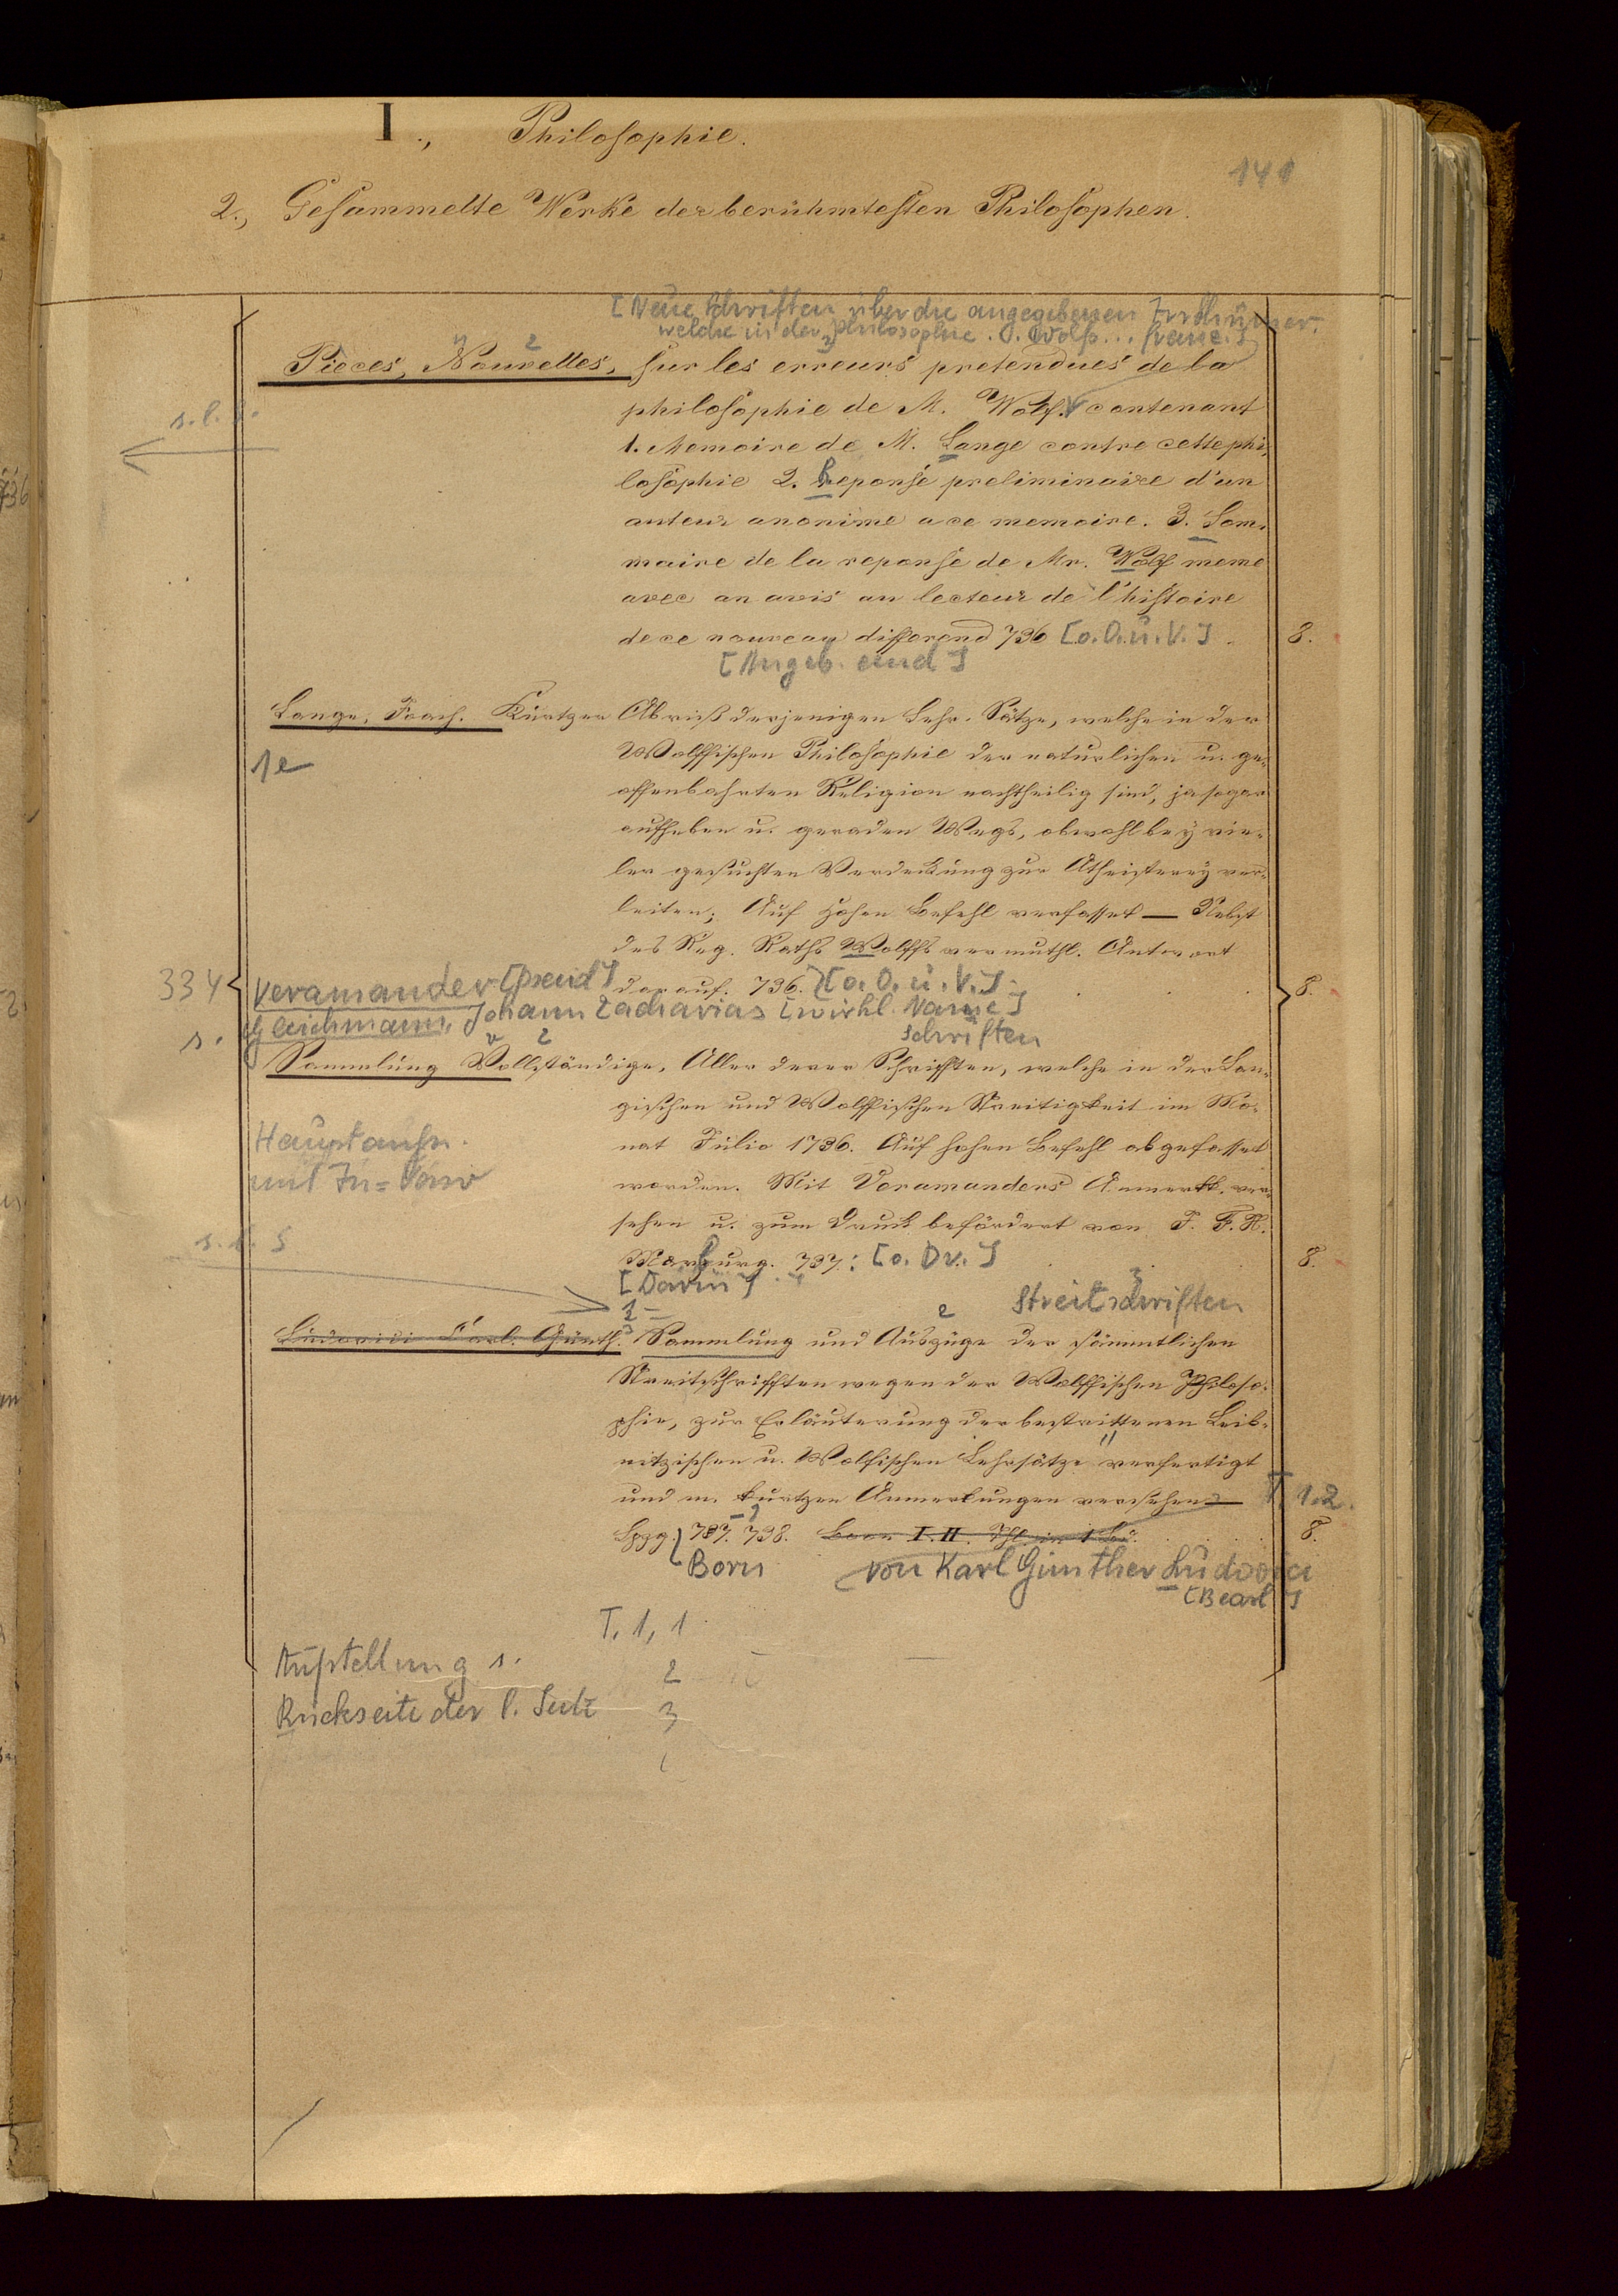 I., Philosophie.
141
2., Gesammelte Werke der berühmtesten Philosophen.
[Neue Schriften über die angegebenen Irrthümer,
welche in der Philosophie. v. Wolf... franz.]
Pièces, Nouvelles, sur les erreurs pretendues de la
s. l. S.
philosophie de M. Wolf. contenant
1. Memoire de M. Lange contre cette phi-
losophie 2. Reponse preliminaire d'un
auteur anonime a ce memoire. 3. Som-
maire de la reponse de Mr. Wolf meme
avec an avis au lecteur de l'histoire
de ce nouveau differend 736 [o. O. u. V.] . 8.
[Angeb. sind]
Lange, Joach. Kurtzer Abriß derjenigen Lehr-Sätze, welche in der
1e
Wolffischen Philosophie der naturlichen u. ge-
offenbahrten Religion nachtheilig sind, ja sogar
aufheben u. geraden Wegs, obwohl bey vie-
ler gesuchten Verdeckung zur Atheisterey ver-
leiten; Auf Hohen Befehl verfasset — Nebst
des Reg. Raths Wolffs vermuthl. Antwort
334 Veramander [Pseud] darauf. 736. [o. O. u. V.] . 8.
s. Gleichmann, Johann Zacharias [wirkl. Name]
Schriften
Sammlung Vollständige, Aller derer Schrifften, welche in der Lan-
gischen und Wolffischen Streitigkeit im Mo-
Hauptaufn.
nat Julio 1736. Auf hohen Befehl abgefasset
worden. Mit Veramanders Anmerkk. ver-
sehen u. zum Druck befördert von J. F. K.
s. l. S
Marburg. 737: [o. Dv.] 8.
[Darin]
Streitschriften
Ludovici Carl. Günth. Sammlung und Auszüge der sämmtlichen
Streitschrifften wegen der Wolffischen Philoso-
phie, zur Erläuterung der bestrittenen Leib-
nitzischen u. Wolfischen Lehrsätze verfertigt
und m. kurtzen Anmerkungen versehen — T. 1.2.
Lpzg. 737. 738. Born I. II. Thl. in 1 Bd. 8.
Born von Karl Günther Ludovici
[Bearb]
T. 1, 1
Aufstellung s.
2
Rückseite der l. Seite
3